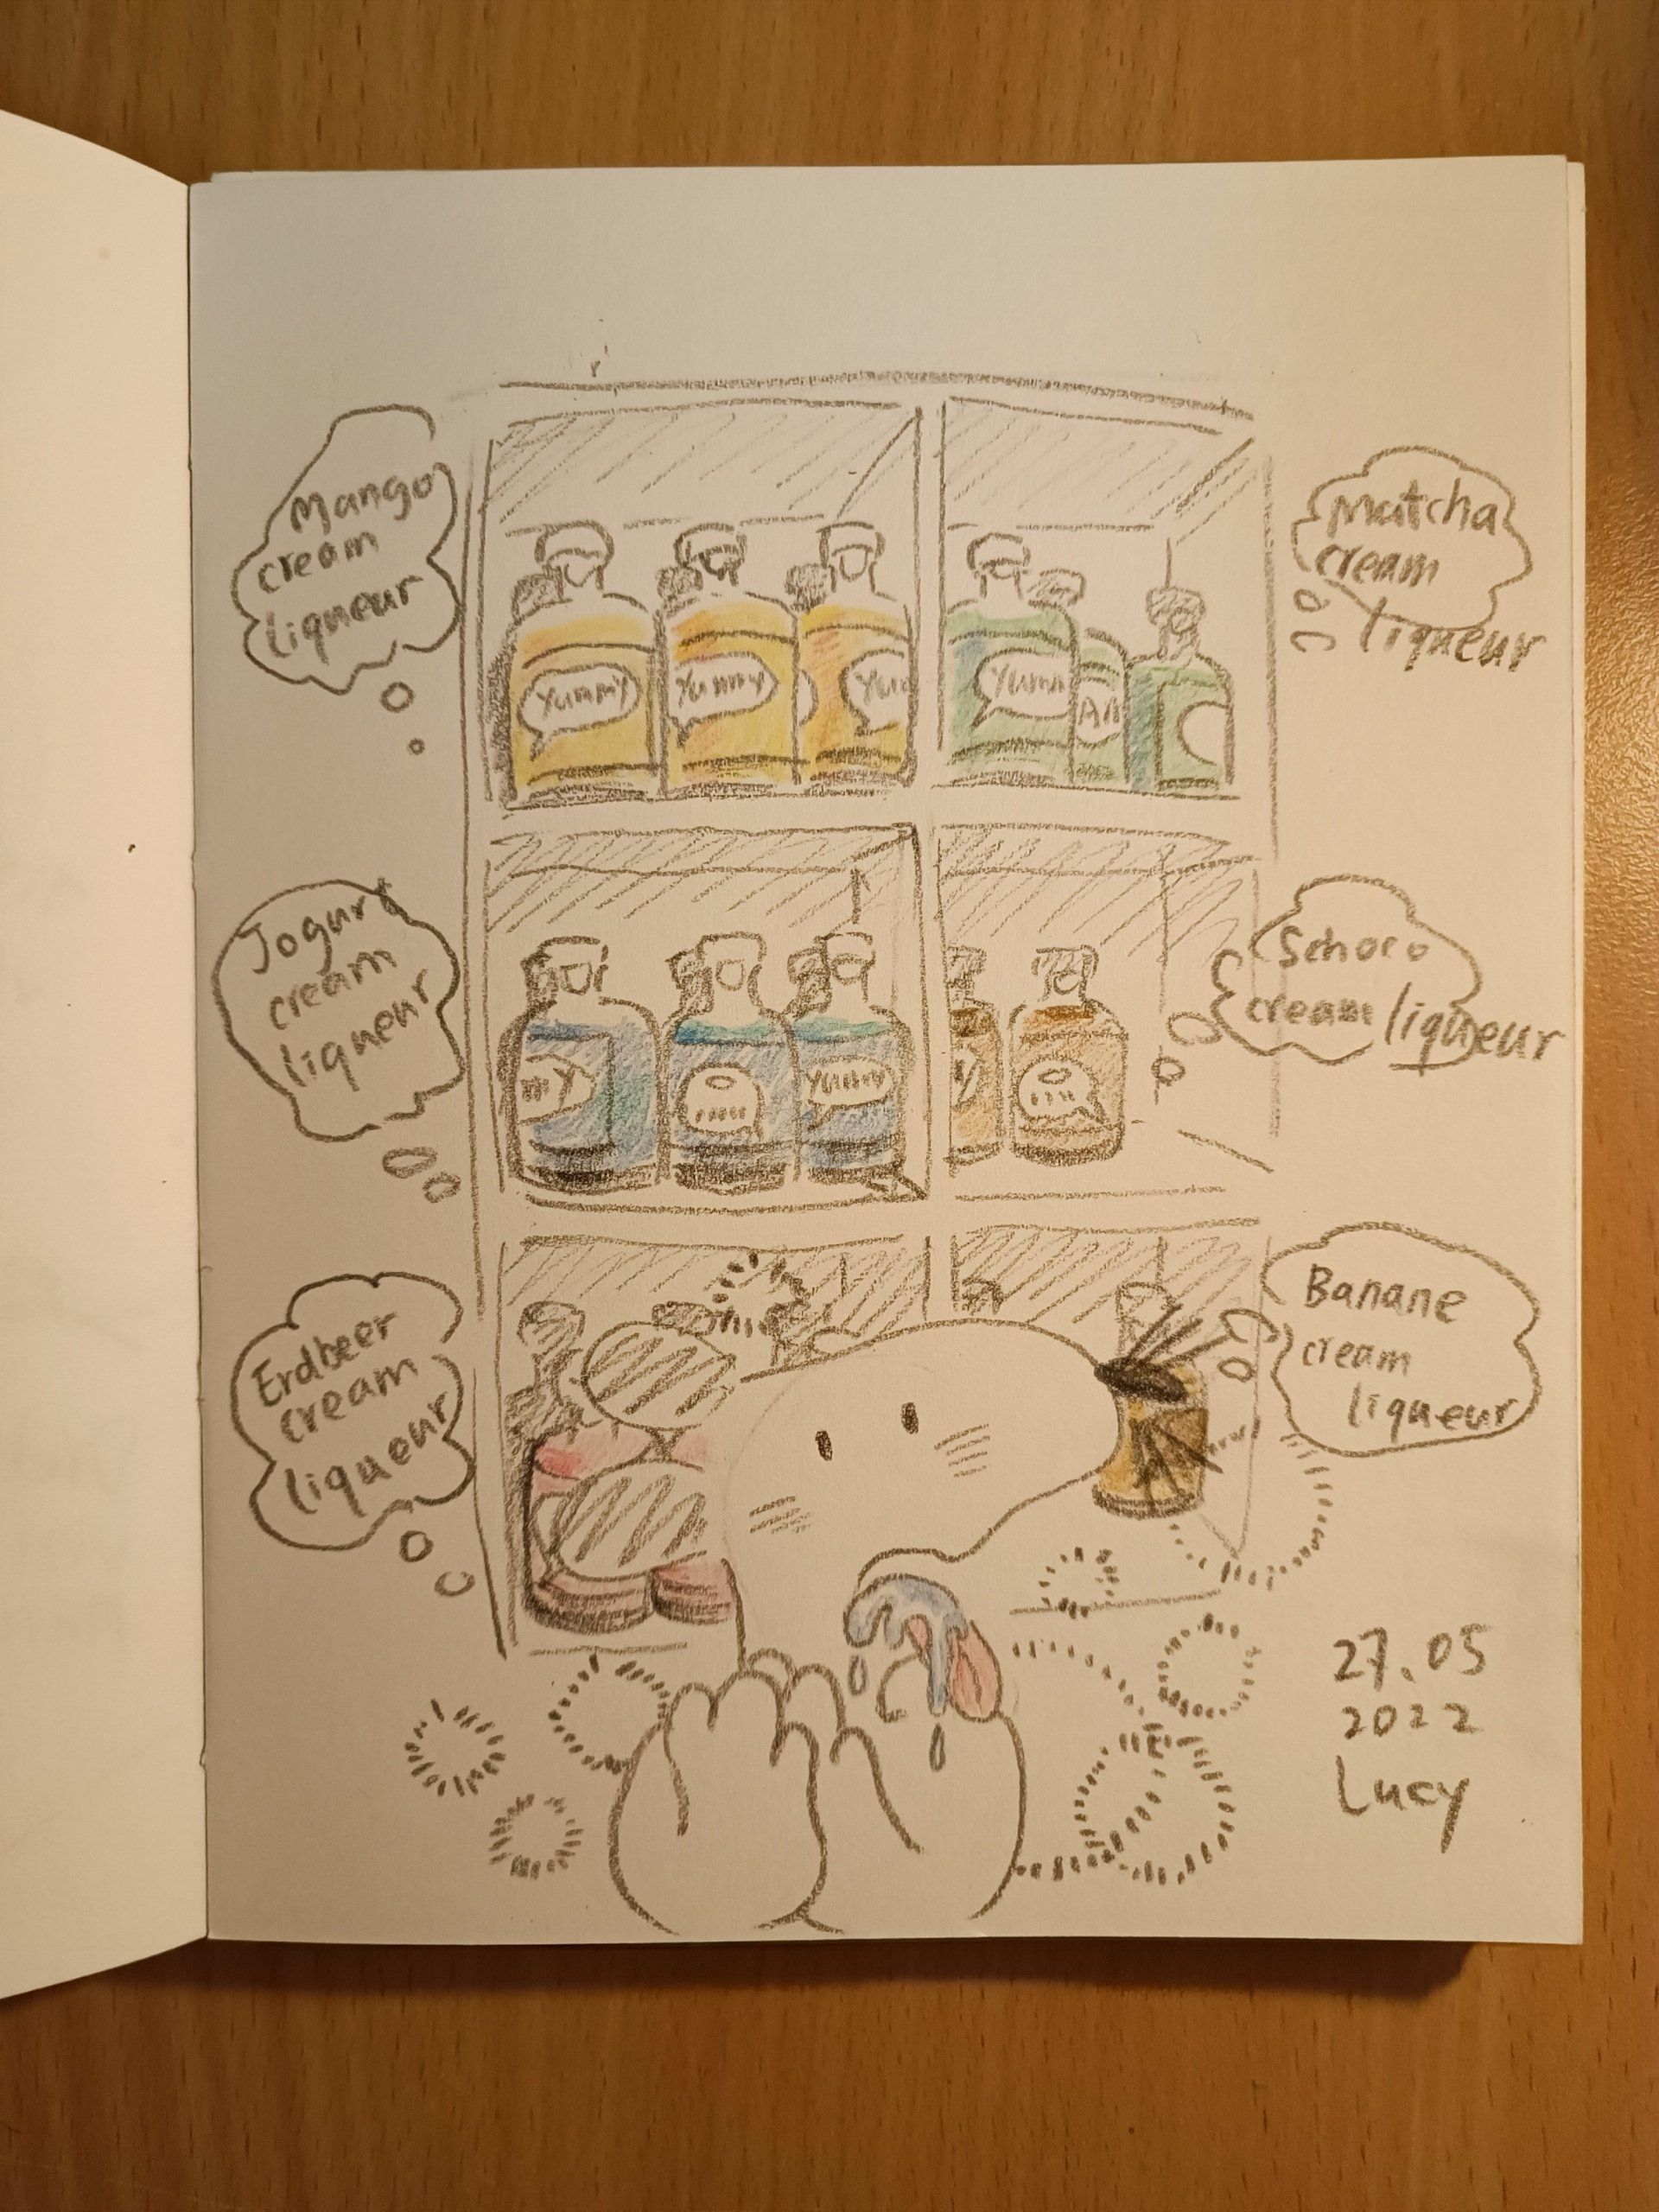 Mango
cream
liqueur
Matcha
cream
liqueur
Yummy
Yummy
Yu
Yumm
Jogurt
cream
liqueur
Schoco
cream liqueur
my
Yummy
y
Erdbeer
cream
liqueur
Banane
cream
liqueur
27.05
2022
Lucy